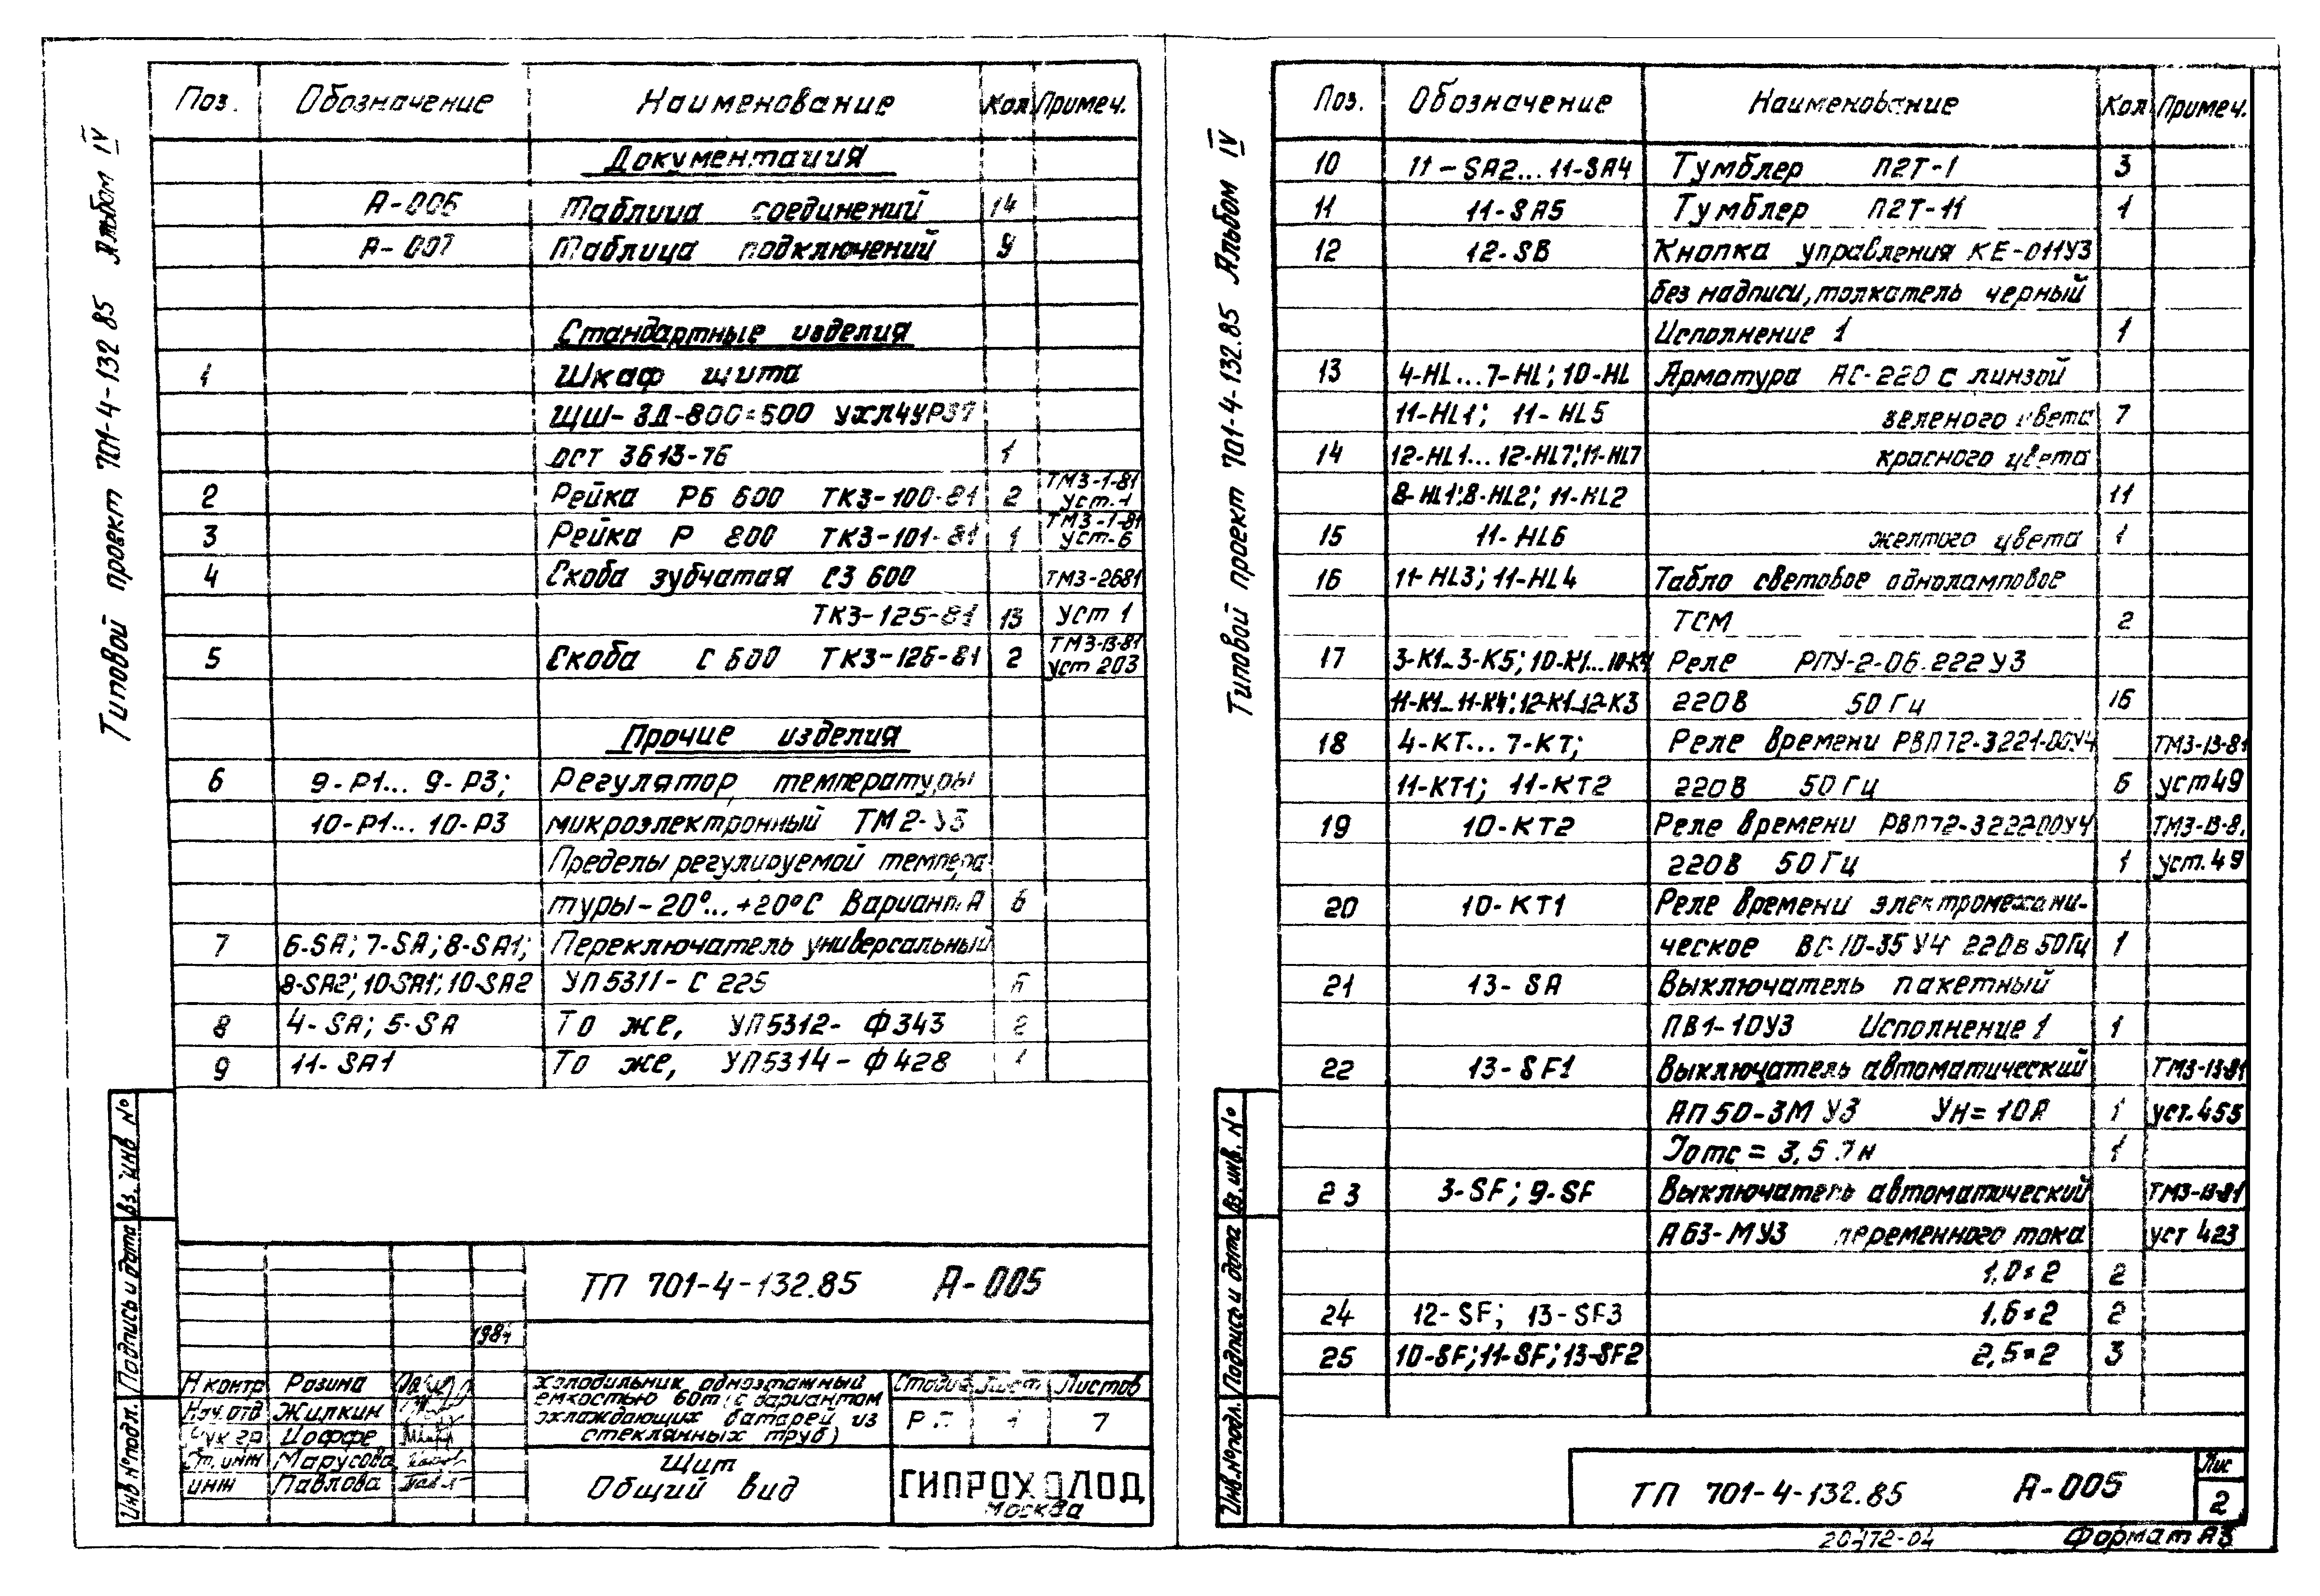 Типовой проект 701-4-132 85 Альбом IV
Поз. Обозначение Наименование Кол Примеч.
Документация
А-006 Таблица соединений 14
А-007 Таблица подключений 9
Стандартные изделия
1 Шкаф щита
ЩШ-ЗД-800×600 УХЛ4УР37
ост 3613-76 1
2 Рейка РБ 600 ТК3-100-81 2 ТМ3-1-81 уст.-1
3 Рейка Р 800 ТК3-101-81 1 ТМ3-1-81 уст.-6
4 Скоба зубчатая СЗ 600 ТМ3-2681
ТК3-125-81 13 уст 1
5 Скоба С 600 ТК3-126-81 2 ТМ3-13-81 уст 203
Прочие изделия
6 9-Р1... 9-Р3; Регулятор температуры
10-Р1... 10-Р3 микроэлектронный ТМ2-У3
Пределы регулируемой темпера
туры -20°...+20°С Вариант А 6
7 6-SA; 7-SA; 8-SA1; Переключатель универсальный
8-SA2; 10-SA1; 10-SA2 УП5311-С 225 6
8 4-SA; 5-SA То же, УП5312-Ф343 2
9 11-SA1 То же, УП5314-Ф428 1
Вз. инв №
Подпись и дата
Инв № подл.
ТП 701-4-132.85 А-005
1984
Н контр Розина
Нач. отд Жилкин
Рук гр Иоффе
Ст. инж Марусова
инж Павлова
Холодильник одноэтажный
емкостью 60т (с вариантом
охлаждающих батарей из
стеклянных труб)
Стадия Лист Листов
Р.П. 1 7
Щит
Общий вид
ГИПРОХОЛОД
Москва
Типовой проект 701-4-132.85 Альбом IV
Поз. Обозначение Наименование Кол Примеч.
10 11-SA2...11-SA4 Тумблер П2Т-1 3
11 11-SA5 Тумблер П2Т-11 1
12 12-SB Кнопка управления КЕ-011У3
без надписи, толкатель черный
Исполнение 1 1
13 4-HL...7-HL; 10-HL Арматура АС-220 с линзой
11-HL1; 11-HL5 зеленого цвета 7
14 12-HL1...12-HL7; 11-HL7 красного цвета
8-HL1; 8-HL2; 11-HL2 11
15 11-HL6 желтого цвета 1
16 11-HL3; 11-HL4 Табло световое одноламповое
ТСМ 2
17 3-К1...3-К5; 10-К1...10-К4 Реле РПУ-2-06.222У3
11-К1...11-К4; 12-К1...12-К3 220В 50Гц 16
18 4-КТ... 7-КТ; Реле времени РВП72-3221-00У4 ТМ3-13-81
11-КТ1; 11-КТ2 220В 50Гц 6 уст49
19 10-КТ2 Реле времени РВП72-322200У4 ТМ3-13-8.
220В 50Гц 1 уст.49
20 10-КТ1 Реле времени электромехани-
ческое ВС-10-35У4 220в 50Гц 1
21 13-SA Выключатель пакетный
ПВ1-10У3 Исполнение 1 1
22 13-SF1 Выключатель автоматический ТМ3-13-81
АП50-3М У3 Ун=10А 1 уст.455
Jотс = 3,5 Jн 1
23 3-SF; 9-SF Выключатель автоматический ТМ3-13-81
А63-МУ3 переменного тока уст 423
1,0×2 2
24 12-SF; 13-SF3 1,6×2 2
25 10-SF; 11-SF; 13-SF2 2,5×2 3
Вз. инв. №
Подпись и дата
Инв. № подл.
ТП 701-4-132.85 А-005
Лис
2
20472-04 Формат А3